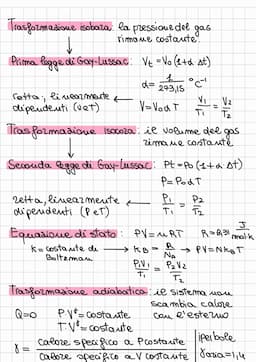 Trasformazione isobara: la pressione del gas
rimane costante.
Prima legge di Gay-Lussac: Vt = V₀ (1+α Δt)
α = 1/273,15 °C⁻¹
retta, linearmente dipendenti (V e T) ← V = V₀ α T V₁/T₁ = V₂/T₂
Trasformazione isocora: il volume del gas
rimane costante
Seconda legge di Gay-Lussac: Pt = P₀ (1+α Δt)
P = P₀ α T
retta, linearmente dipendenti (P e T) ← P₁/T₁ = P₂/T₂
Equazione di stato: PV = nRT R = 8.31 J/mol·K
K = costante di Boltzman → K_B = R/N_A → PV = N K_B T
P₁V₁/T₁ = P₂V₂/T₂
Trasformazione adiabatica: il sistema non
scambia calore
con l'esterno
Q=0 PVᵞ = costante
T·Vᵞ = costante
γ = calore specifico a P costante / calore specifico a V costante
iperbole
γ aria = 1,4